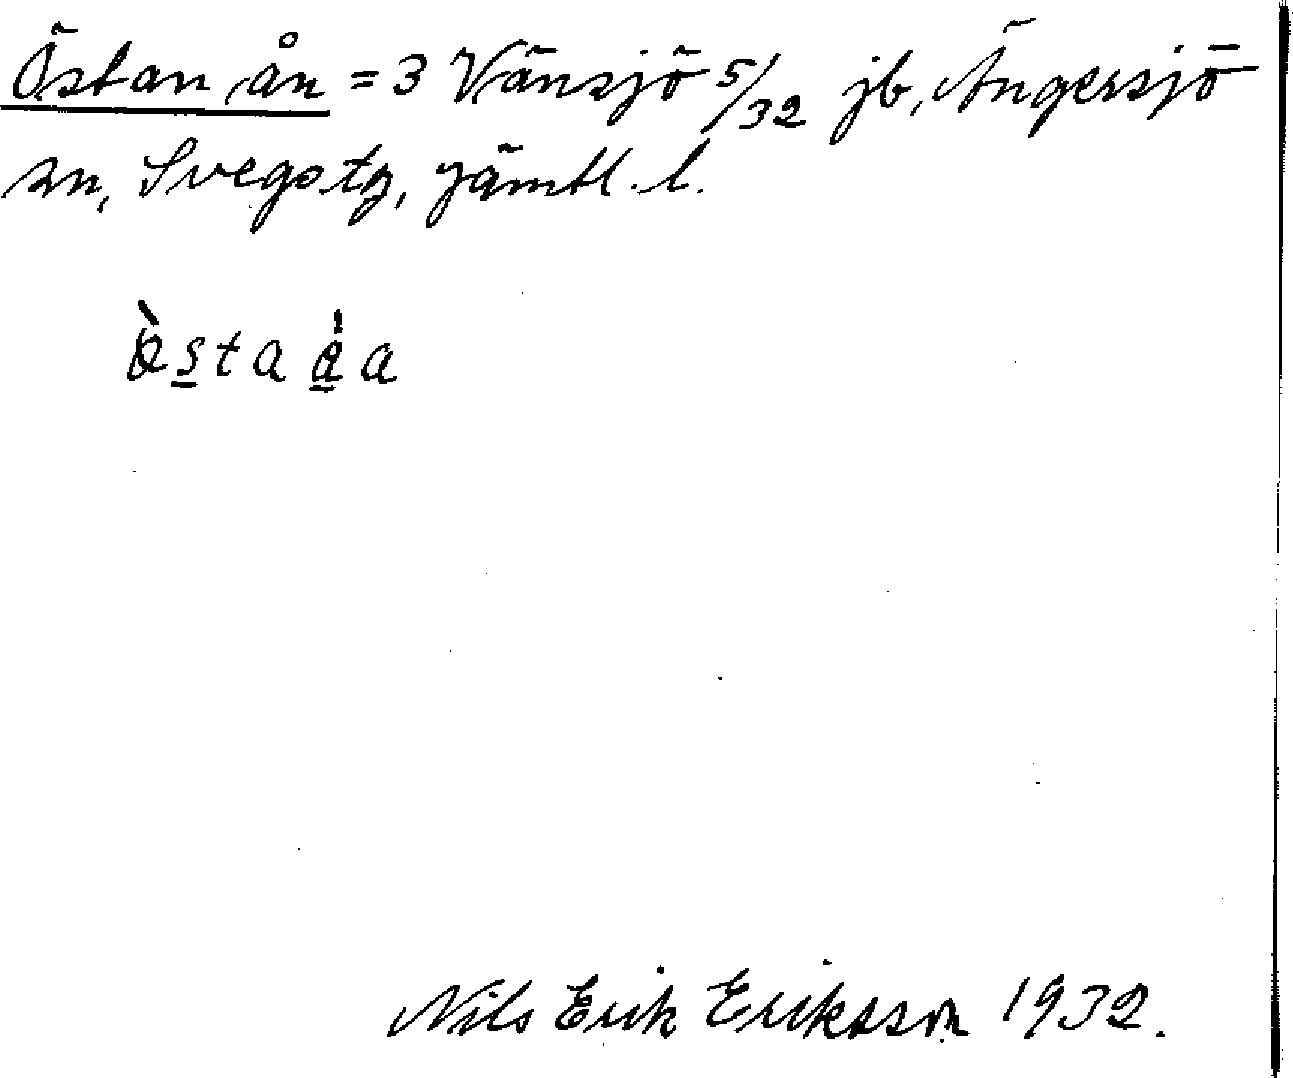 Östan ån = 3 Vänsjö 5/32 jb, Ängersjö
sn, Svegs tg, Jämtl. l.
Nils Erik Eriksson 1932.